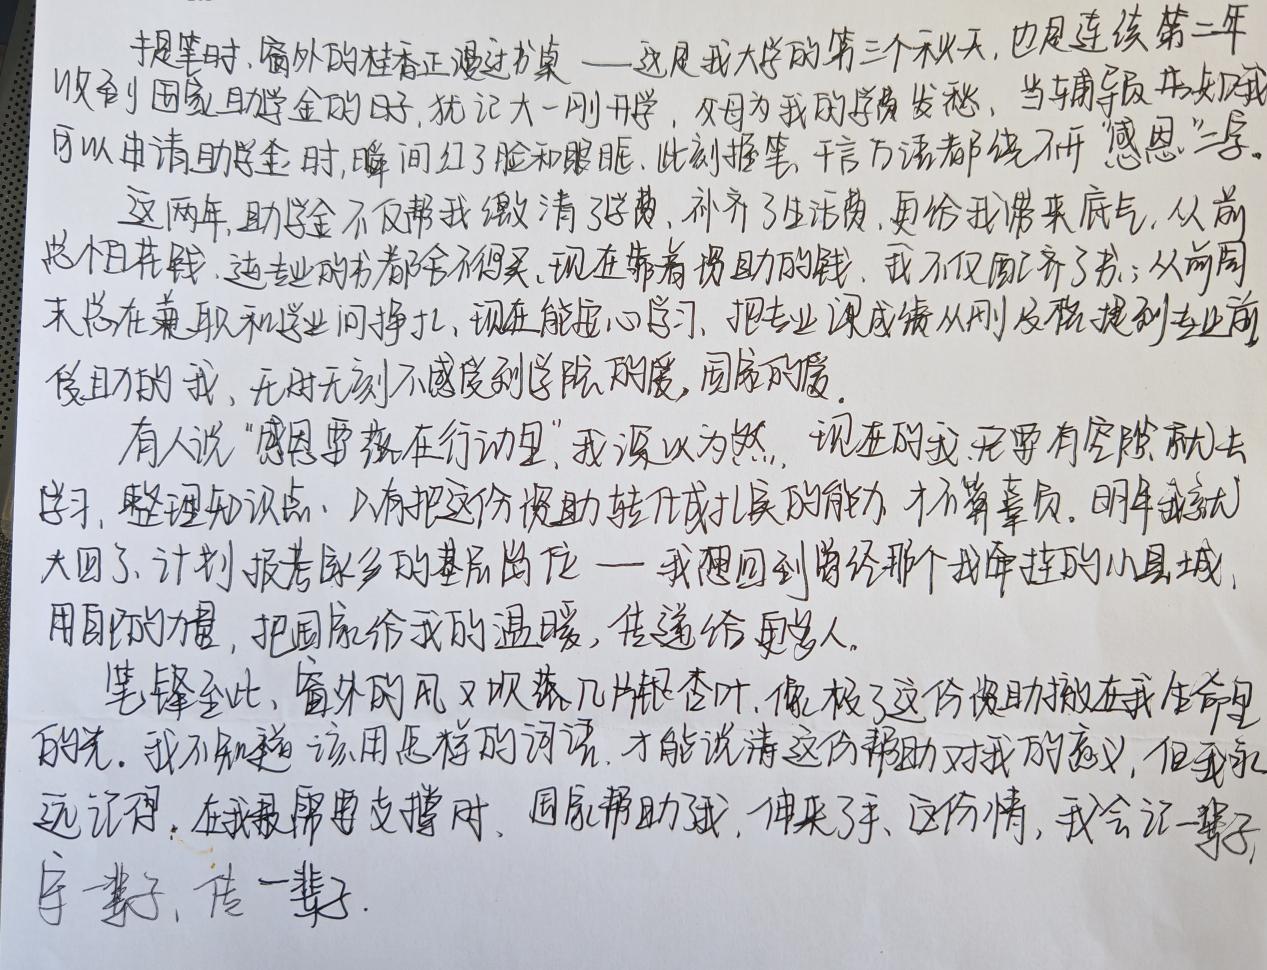 提笔时、窗外的桂香正漫过书桌——这是我大学的第三个秋天,也是连续第二年
收到国家助学金的日子,犹记大一刚开学,父母为我的学费发愁,当辅导员告知我
可以申请助学金时,瞬间红了脸和眼眶.此刻握笔、千言万语都绕不开“感恩”二字。
这两年,助学金不仅帮我缴清了学费、补齐了生活费、更给我带来底气.从前
总个日共钱、连专业的书都舍不得买、现在靠着资助的钱、我不仅配齐了书;从前周
末总在兼职和学业间挣扎、现在能安心学习、把专业课成绩从刚及格提到专业前,
受助的我、无时无刻不感受到学院的暖,国家的暖.
有人说“感恩要落在行动里”,我深以为然.现在的我、只要有空隙就去
学习、整理知识点、只有把这份资助转化成扎实的能力 才不算辜负.明年我就
大四了、计划报考家乡的基层岗位——我想回到曾经那个我牵挂的小县城,
用自己的力量,把国家给我的温暖,传递给更多人.
笔锋至此、窗外的风又吹落几片银杏叶、像极了这份资助撒在我生命里
的光.我不知道该用怎样的词语.才能说清这份帮助对我的意义,但我永
远记得.在我最需要支撑时、国家帮助了我,伸来了手、这份情,我会记一辈子,
守一辈子、传一辈子.